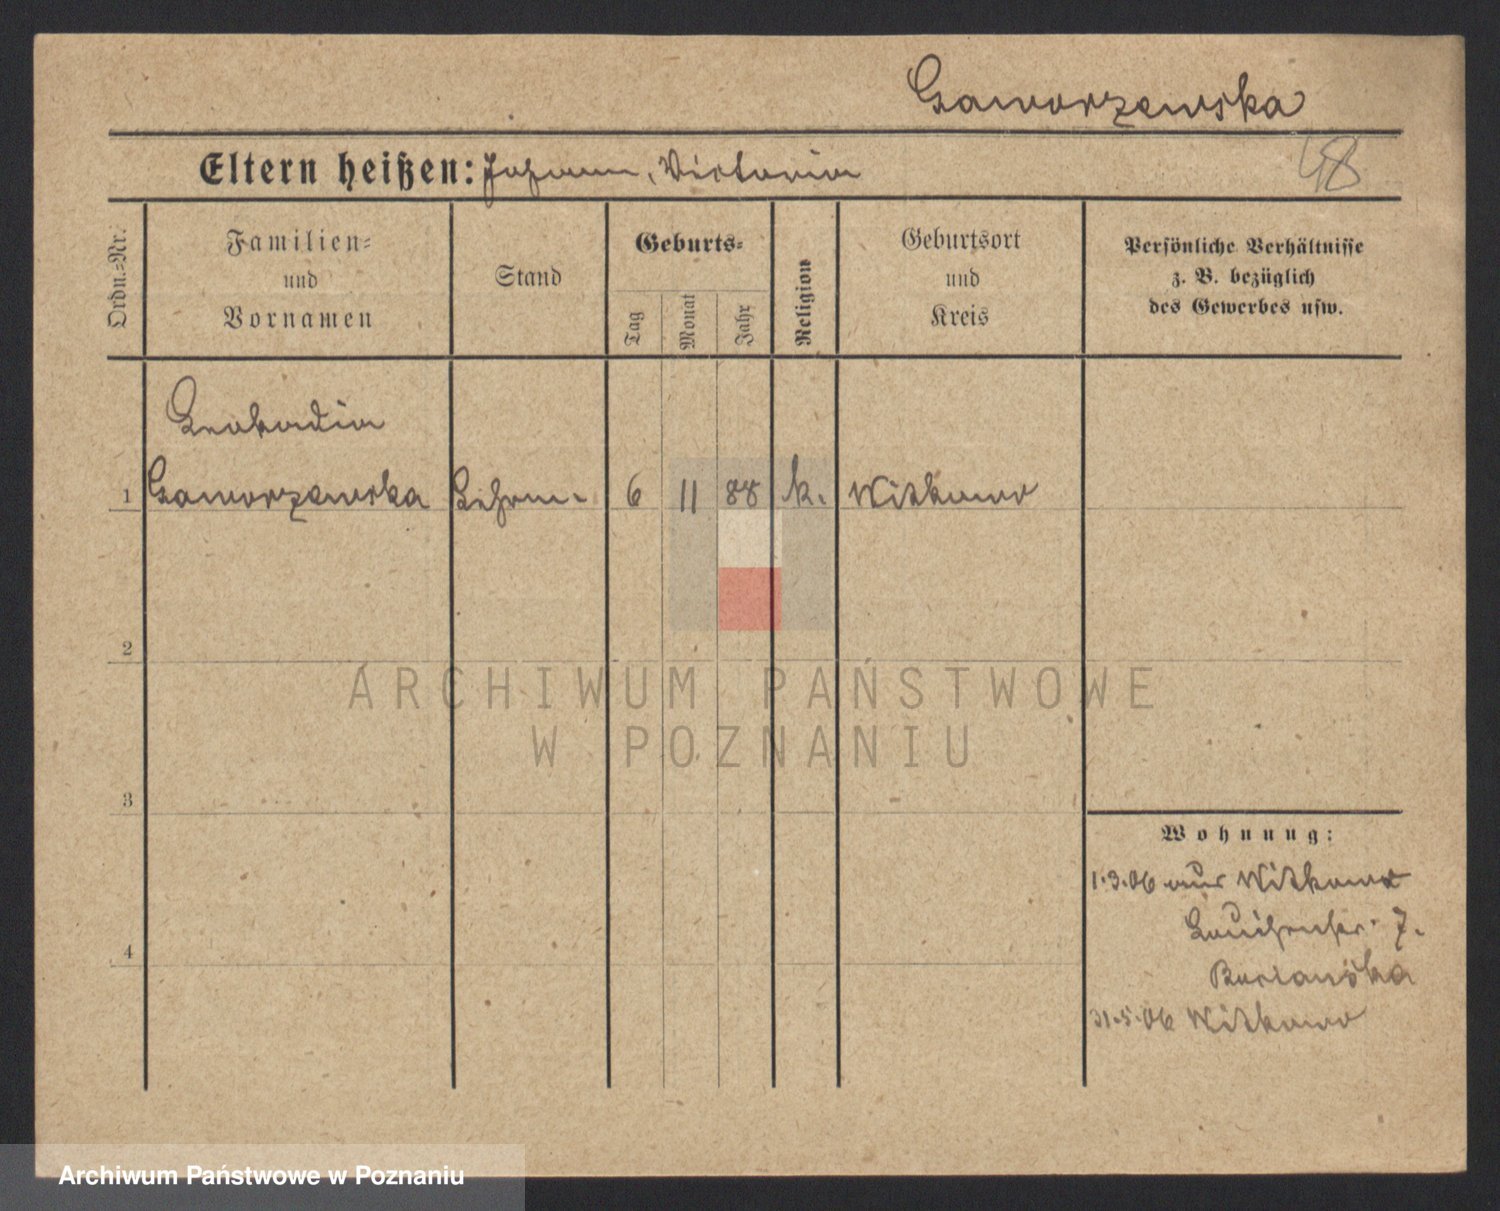 Gaworzewska
Eltern heißen: Johann, Victoria
48
Ordn.-Nr.
Familien-
und
Vornamen
Stand
Geburts-
Tag
Monat
Jahr
Religion
Geburtsort
und
Kreis
Persönliche Verhältnisse
z. B. bezüglich
des Gewerbes usw.
Leokadia
1 Gaworzewska 6 11 88 k. Witkowo
2
3
4
Wohnung:
1.3.06 aus Witkowo
7.
31.5.06 Witkowo
ARCHIWUM PAŃSTWOWE
W POZNANIU
Archiwum Państwowe w Poznaniu